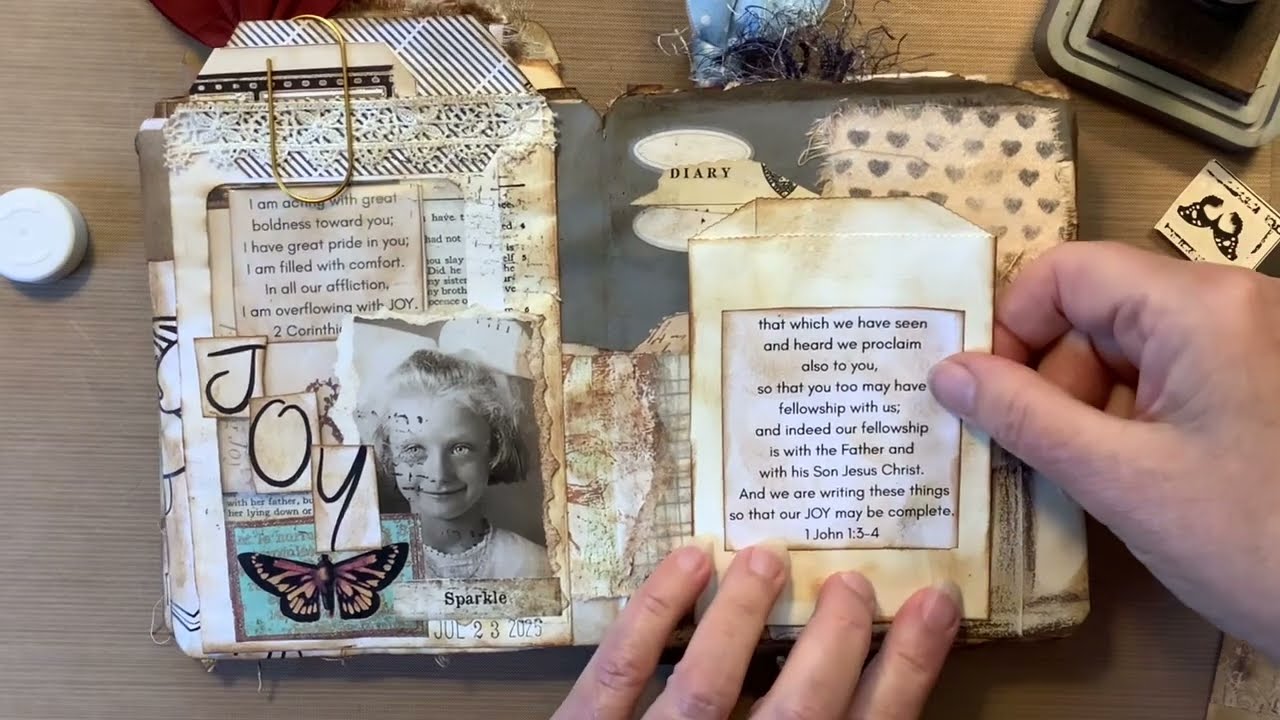 I am acting with great
boldness toward you;
I have great pride in you;
I am filled with comfort.
In all our affliction,
I am overflowing with JOY.
2 Corinthi
have
had not
you slay
Did he
my sister
my broth
ocence o
self
JOY
with her father, bu
her lying down or
Sparkle
JUL 23 2025
DIARY
that which we have seen
and heard we proclaim
also to you,
so that you too may have
fellowship with us;
and indeed our fellowship
is with the Father and
with his Son Jesus Christ.
And we are writing these things
so that our JOY may be complete.
1 John 1:3-4